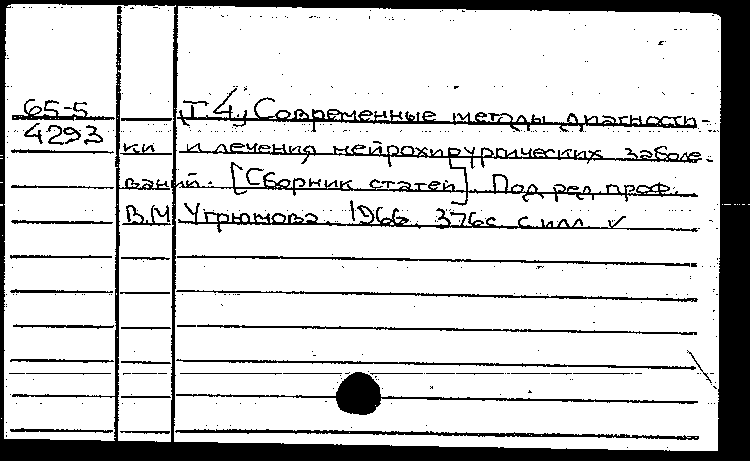 65-5
4293
Т. 4, Современные методы диагности-
ки и лечения нейрохирургических заболе-
ваний. [Сборник статей]. Под ред. проф.
В.М. Угрюмова. 1966. 376с. с илл. ✓